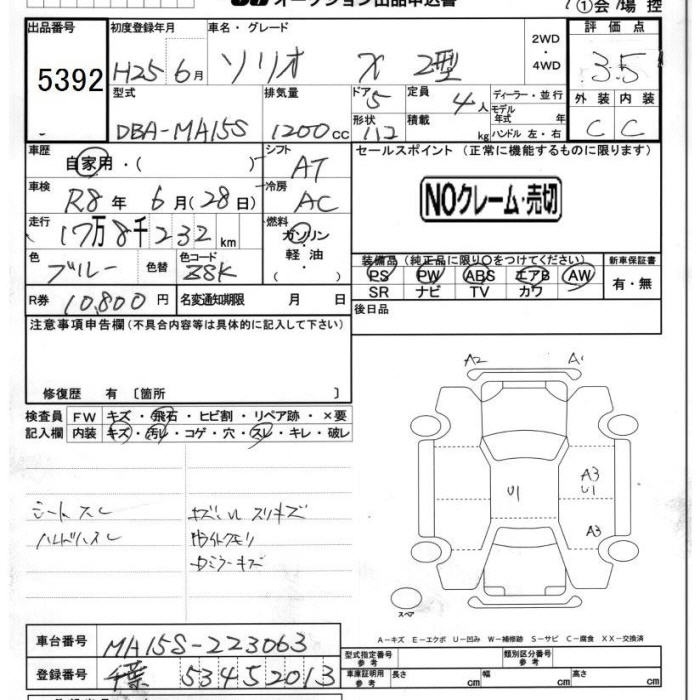 オークション出品申込書
①会場控
出品番号 初度登録年月 車名・グレード 評価点
5392 H25 6月 ソリオ X 2型 2WD・4WD 3.5
型式 排気量 ドア 5 定員 4人 ディーラー・並行 外装 内装
DBA-MA15S 1200cc 形状 積載 kg モデル年式 年 C C
ハンドル 左・右
車歴 シフト セールスポイント (正常に機能するものに限ります)
自家用・( ) AT
車検 冷房
R8年 6月(28日) AC NOクレーム・売切
走行 燃料
17万8千232km ガソリン・軽油・( )
装備品 (純正品に限り○をつけてください) 新車保証書
色 色替 色コード PS PW ABS エアB AW 有・無
ブルー Z8K SR ナビ TV カワ
R券 10,800円 名変通知期限 月 日 後日品
注意事項申告欄(不具合内容等は具体的に記入して下さい)
修復歴 有〔箇所 〕
A2 A1
検査員 FW キズ・飛石・ヒビ割・リペア跡・×要
記入欄 内装 キズ・汚レ・コゲ・穴・スレ・キレ・破レ
A3
U1 U1
シートスレ
A3
スペア
A－キズ E－エクボ U－凹み W－補修跡 S－サビ C－腐食 XX－交換済
車台番号 MA15S-223063
型式指定番号 参考 類別区分番号 参考
登録番号 千葉 534 5 2013
車庫証明用 参考 長さ cm 幅 cm 高さ cm